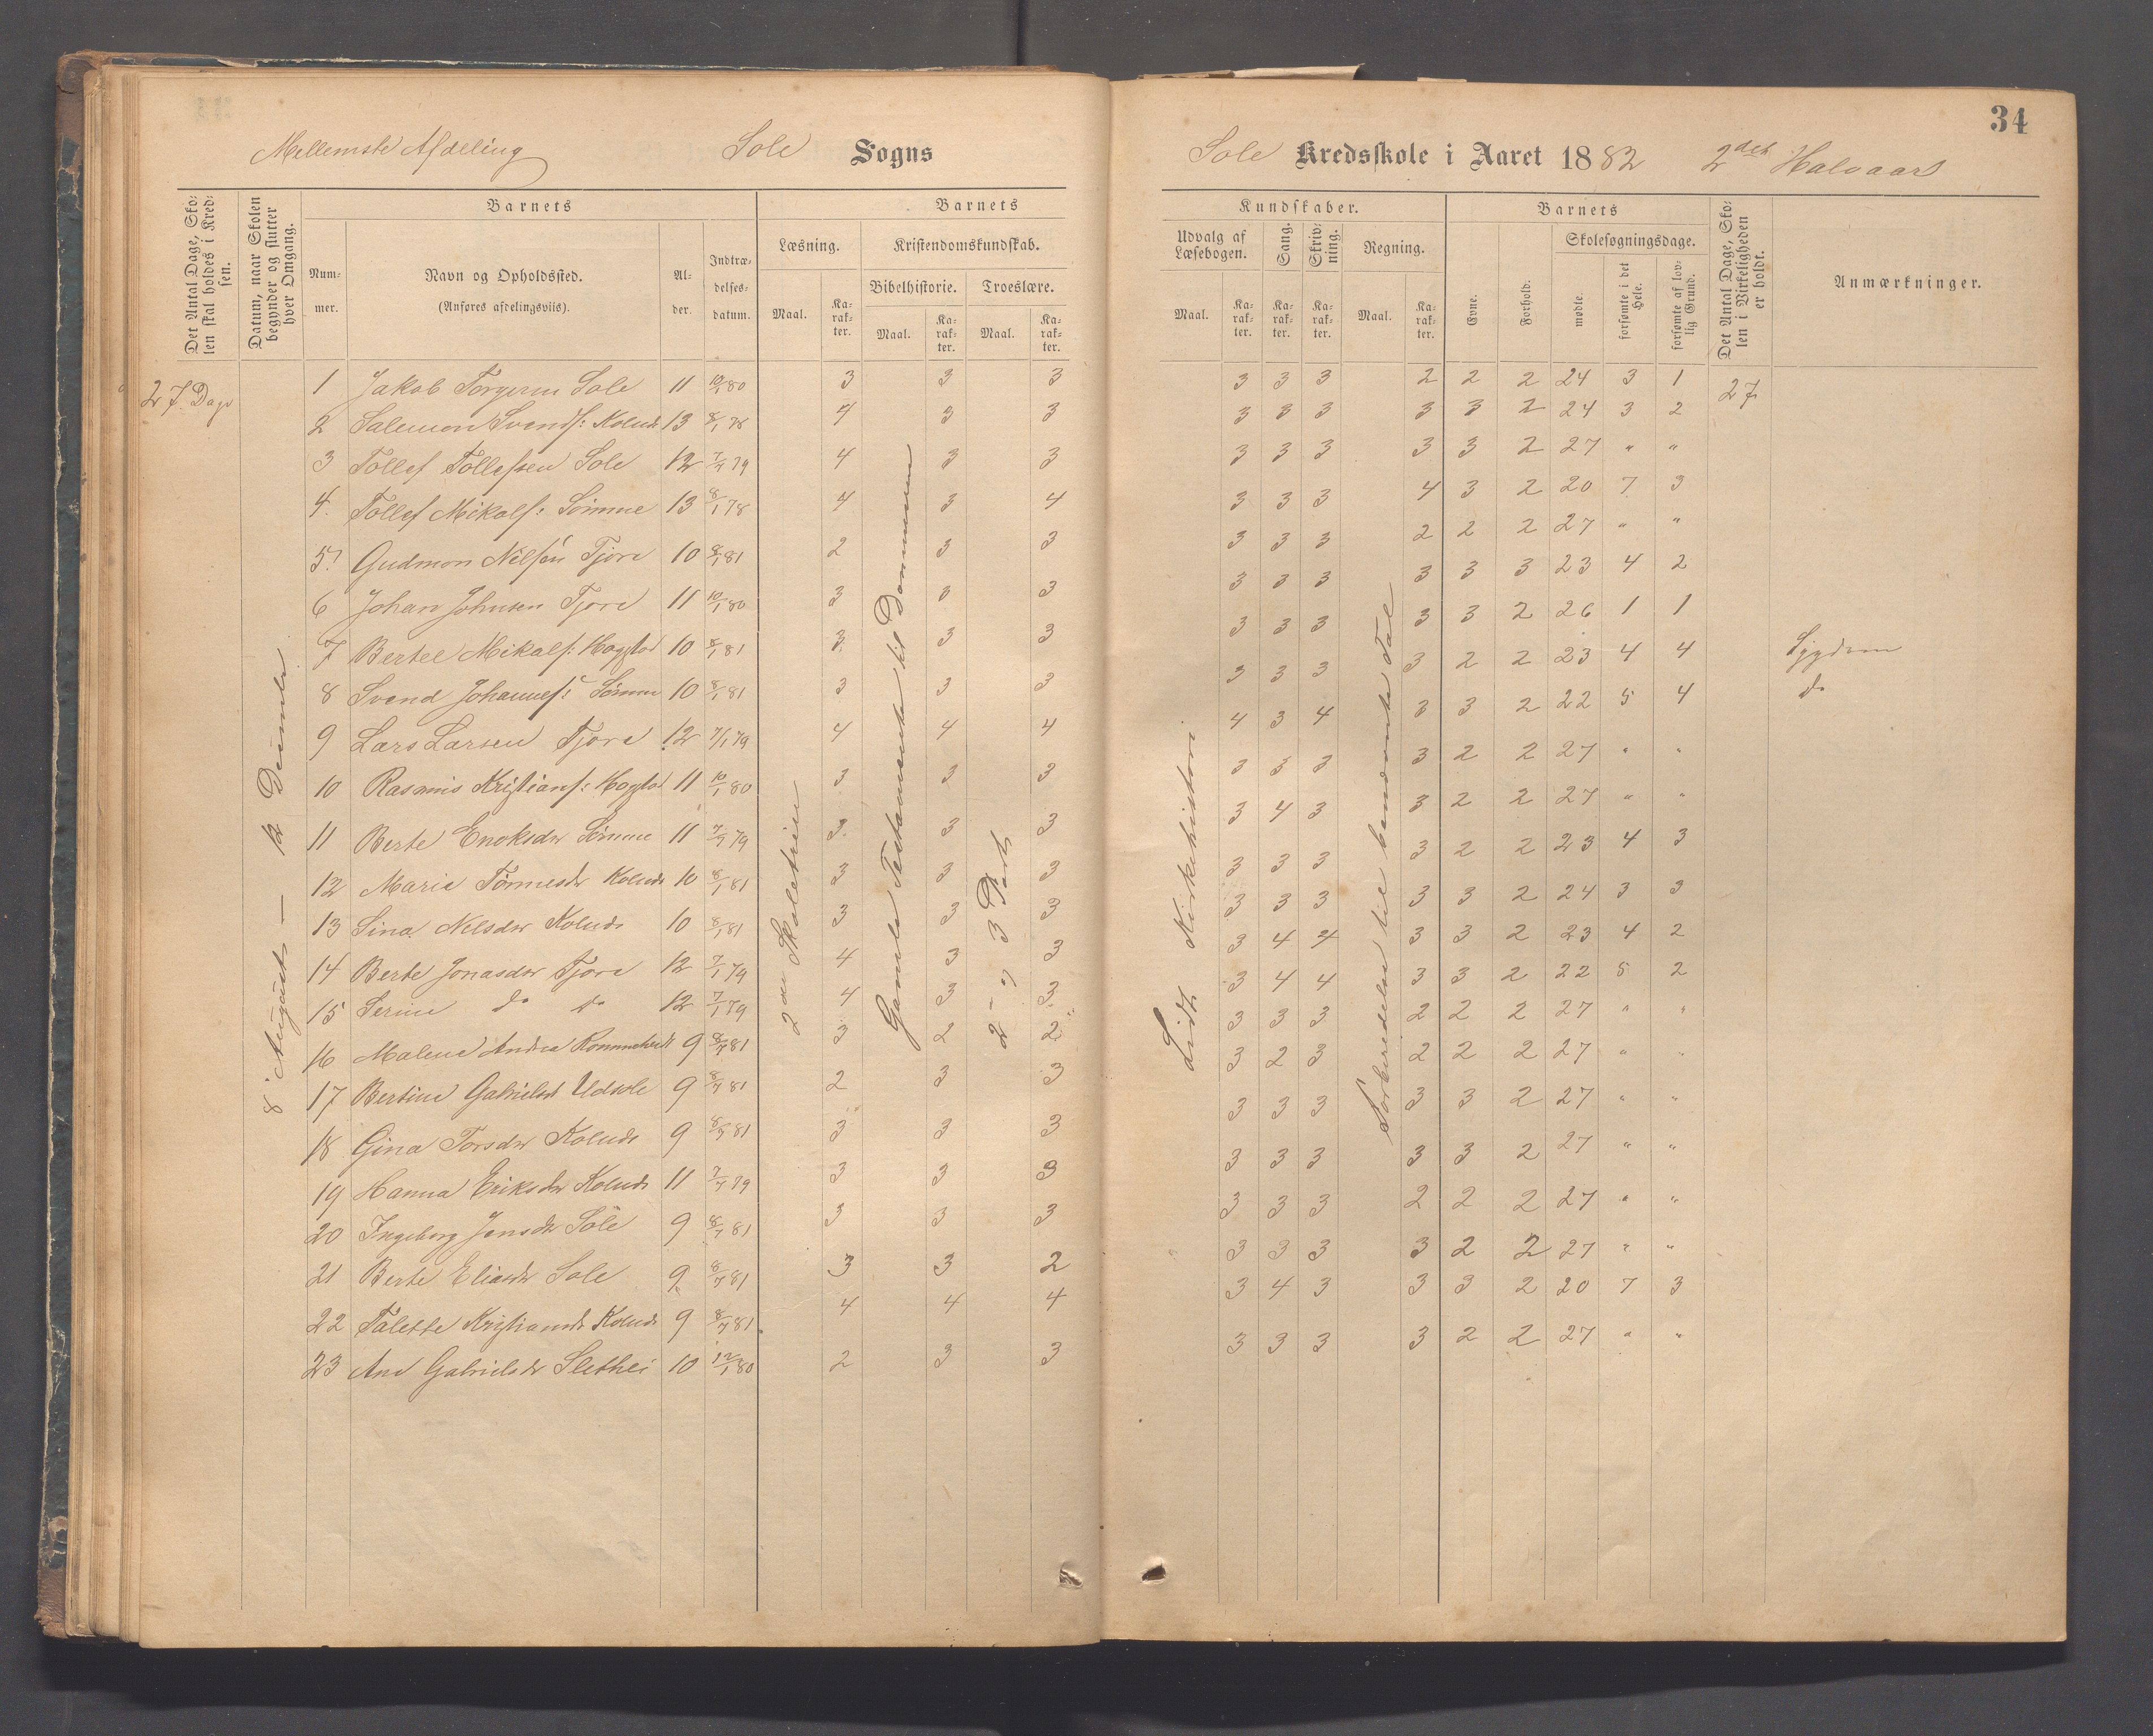 34
Mellemste Afdeling Sole Sogns
Sole Kredsskole i Aaret 1882 2det Halvaar
Det Antal Dage, Skolen skal holdes i Kredsen.
Datum, naar Skolen begynder og slutter hver Omgang.
Barnets
Nummer.
Navn og Opholdssted.
(Anføres afdelingsviis).
Alder.
Indtrædelsesdatum.
Barnets
Læsning.
Kristendomskundskab.
Bibelhistorie. Troeslære.
Maal. Karakter. Maal. Karakter. Maal. Karakter.
Kundskaber.
Udvalg af Læsebogen. Sang. Skrivning. Regning.
Maal. Karakter. Karakter. Karakter. Maal. Karakter.
Barnets
Evne. Forhold.
Skolesøgningsdage.
mødte. forsømte i det Hele. forsømte af lovlig Grund.
Det Antal Dage, Skolen i Virkeligheden er holdt.
Anmærkninger.
27 Dage
8 August — 12
2den
Gamle Testamente til Dommerne
2 - 3 Part
Lidt Kirkehistorie
Forberedelse til benævnte Tal
1 Jakob Torgersen Sole 11 10/1 80 3 3 3 3 3 3 2 2 2 24 3 1 27
2 Salemon Svends: Kolnes 13 8/1 78 4 3 3 3 3 3 3 3 2 24 3 2
3 Tollef Tollefsen Sole 12 7/1 79 4 3 3 3 3 3 3 3 2 27 " "
4. Tollef Mikals: Sømme 13 8/1 78 4 3 4 3 3 3 4 3 2 20 7 3
5. Gudmon Nilsen Tjore 10 8/1 81 2 3 3 3 3 3 2 2 2 27 " "
6 Johan Johnsen Tjore 11 10/1 80 3 3 3 3 3 3 3 3 3 23 4 2
7 Bertel Mikals: 10 8/1 81 3 3 3 3 3 3 3 3 2 26 1 1
8 Svend Johannes: Sømme 10 8/1 81 3 3 3 3 3 3 3 2 2 23 4 4 Sygdom
9 Lars Larsen Tjore 12 7/1 79 4 4 4 4 3 4 3 3 2 22 5 4 do
10 Rasmus Kristians: 11 10/1 80 3 3 3 3 3 3 3 2 2 27 " "
11 Berte Enoksdr Sømme 11 7/7 79 3 3 3 3 4 3 3 2 2 27 " "
12 Marie Tønnesdr Kolnes 10 8/1 81 3 3 3 3 3 3 3 2 2 23 4 3
13 Sina Nelsdr Kolnes 10 8/1 81 3 3 3 3 3 3 3 3 2 24 3 3
14 Berte Jonasdr Tjore 12 7/1 79 4 3 3 3 4 4 3 3 2 23 4 2
15 Serine do do 12 7/1 79 4 3 3 3 4 4 3 3 2 22 5 2
16 Malene Andrea 9 8/7 81 3 2 2 3 3 3 2 2 2 27 " "
17 Bertine Gabrielsd Udsole 9 8/7 81 2 3 3 3 2 3 2 2 2 27 " "
18 Gina Torsdr Kolnes 9 8/7 81 3 3 3 3 3 3 3 3 2 27 " "
19 Hanna Eriksdr Kolnes 11 7/7 79 3 3 3 3 3 3 3 3 2 27 " "
20 Ingeborg Jensdr Sole 9 8/7 81 3 3 3 3 3 3 2 2 2 27 " "
21 Berte Eliasdr Sole 9 8/7 81 3 3 2 3 3 3 3 2 2 27 " "
22 Talette Kristiansdr Kolnes 9 8/7 81 4 4 4 3 4 3 3 3 2 20 7 3
23 Ane Gabrielsdr Slethei 10 12/1 80 2 3 3 3 3 3 3 2 2 27 " "